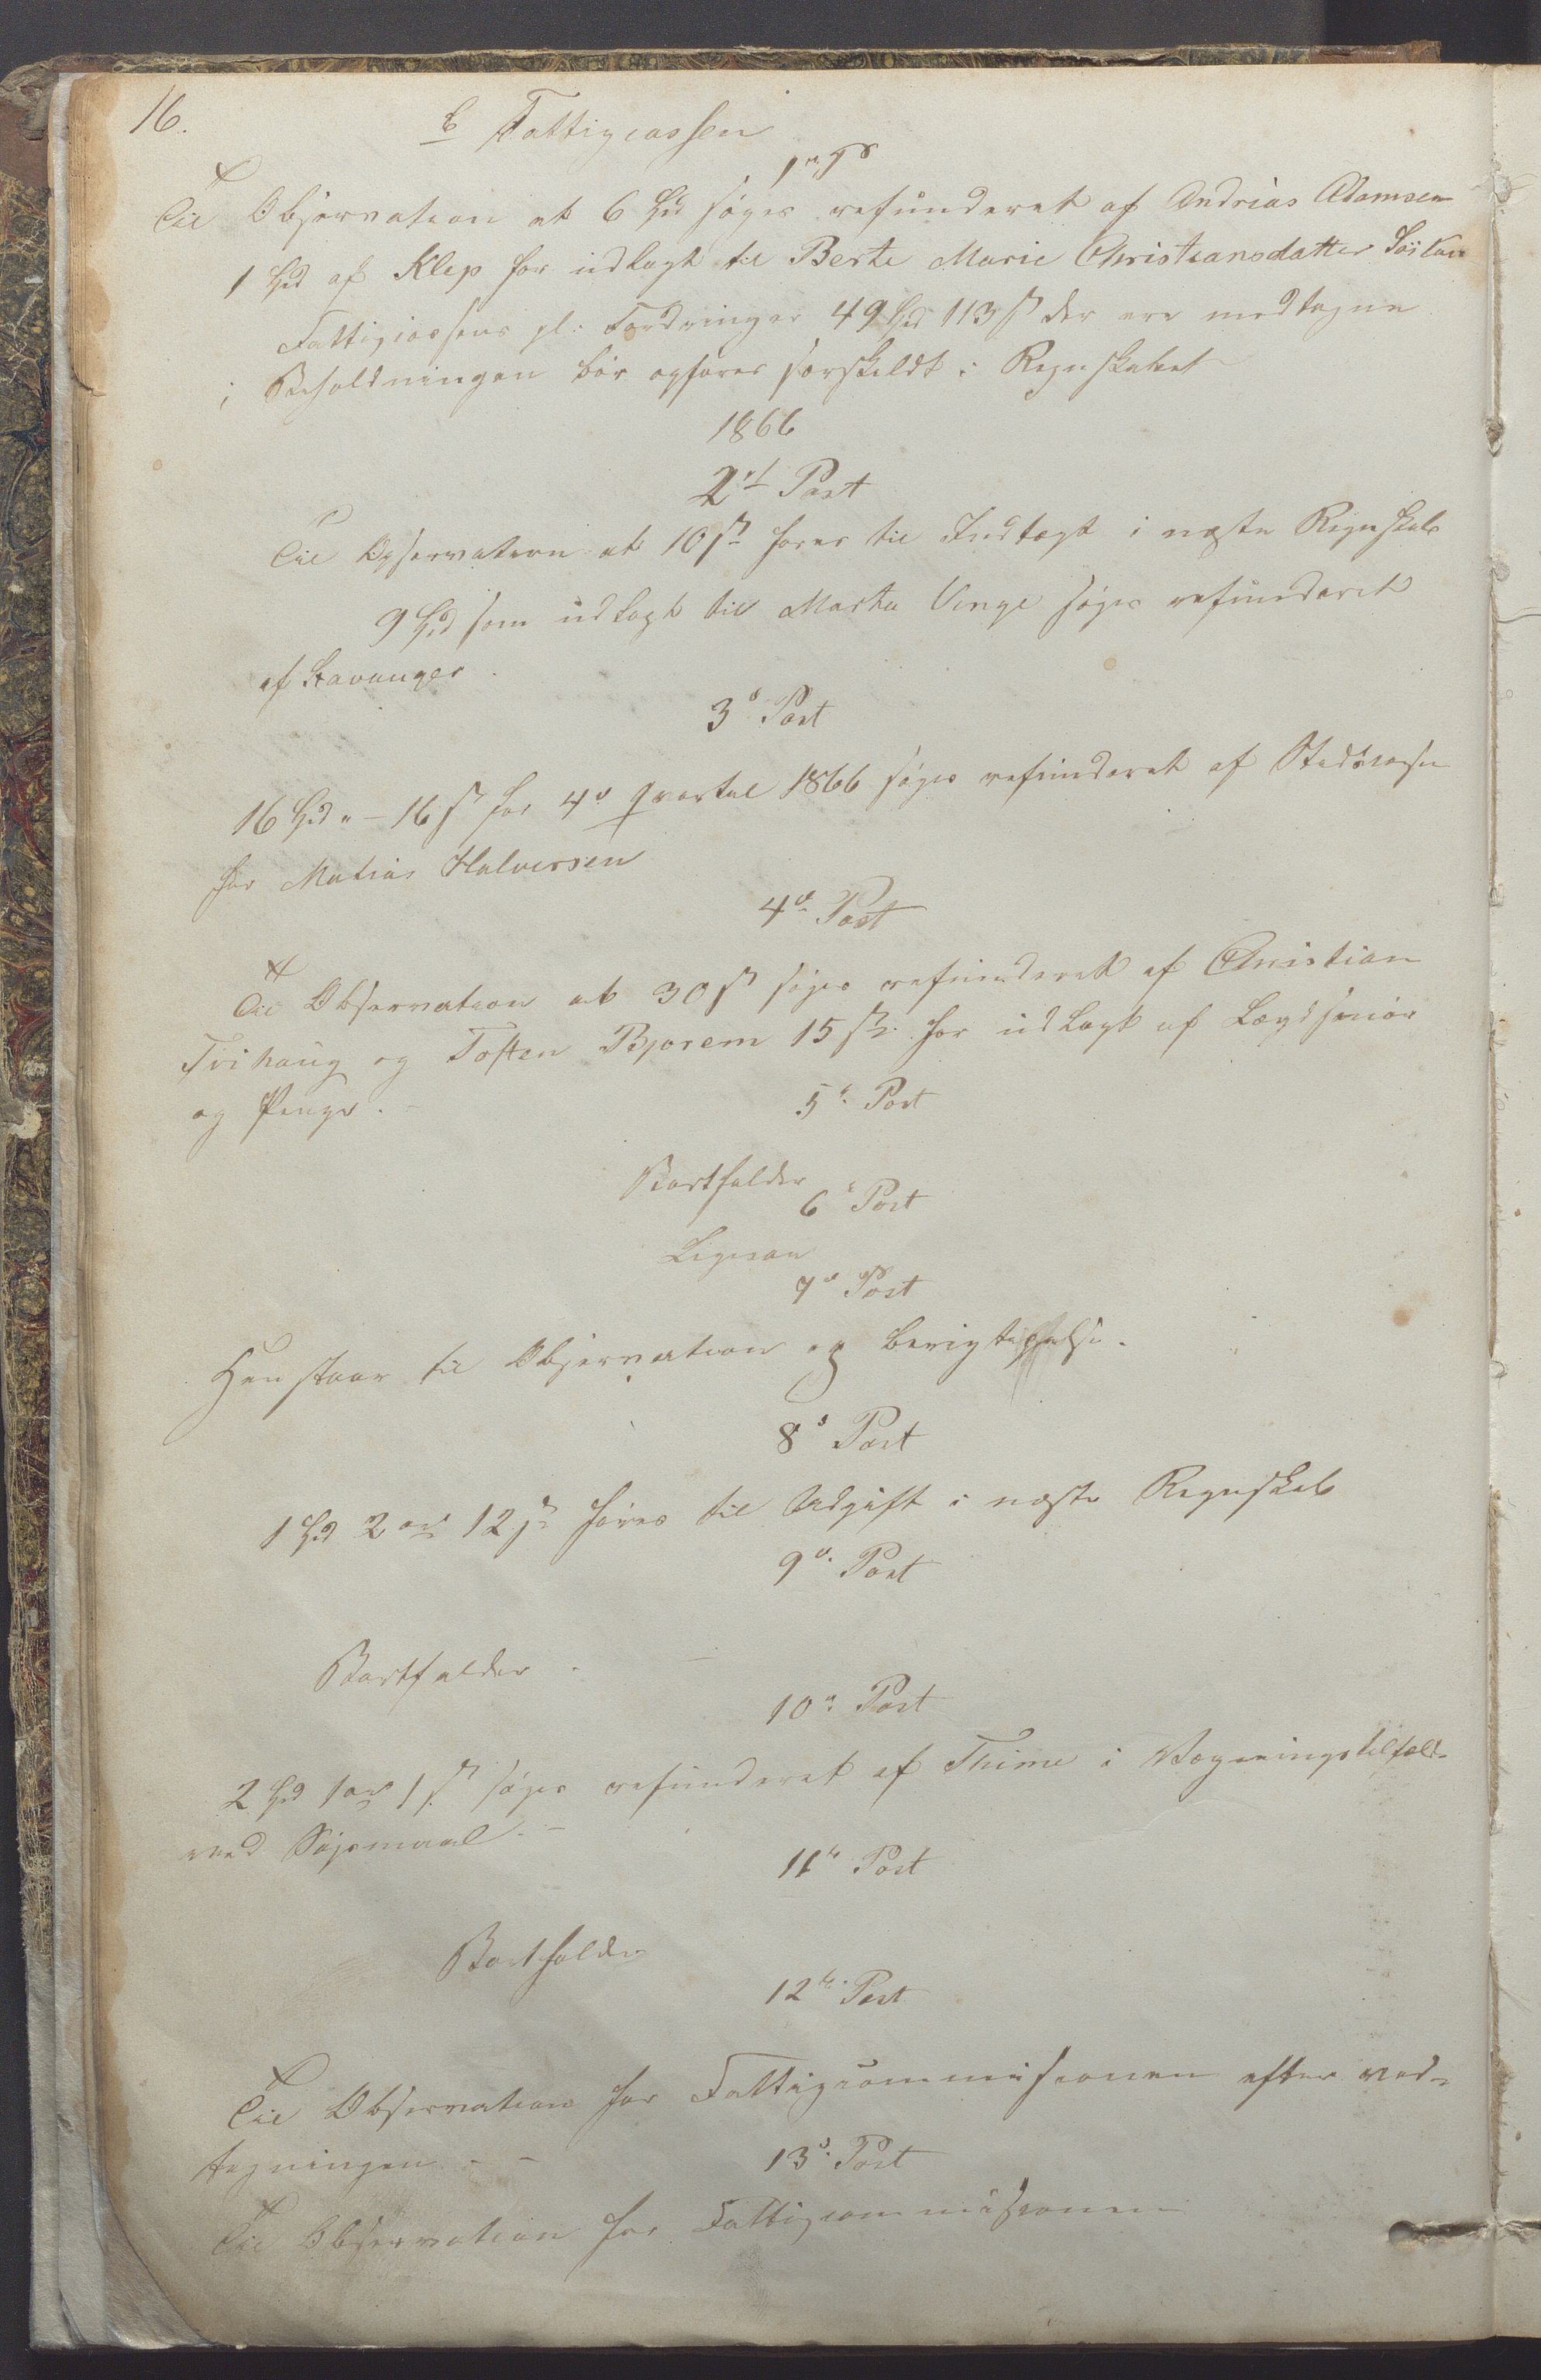 16.
b Fattigcassen
1ste P
Til Observation at 6 Spd søges refunderet af Andrias Adamsen
1 Spd af Klep for udlagt til Berte Marie Christiansdatter
Fattigcassens gl: Fordringer 49 Spd 113 s der ere medtagne
i Beholdningen bør opføres særskildt i Regnskabet
1866
2d Post
Til Observation at 10 s føres til Indtægt i næste Regnskab
9 Spd som udlagt til Marta Vinge søges refunderet
af Stavanger.
3e Post
16 Spd " - 16 s for 4de Qvartal 1866 søges refunderet af Stadscasse
for Matias Halversen
4de Post
Til Observation at 30 s søges refunderet af Christian
Trihaug og Tosten Bjorem 15 s for udlagt af
og Penge. -
5te Post
Bortfalder
6te Post
Ligesaa
7de Post
Henstaar til Observation og Berigtigelse.
8de Post
1 Spd 2 ort 12 s føres til Udgift i næste Regnskab
9de Post
Bortfalder. -
10de Post
2 Spd 1 ort 1 s søges refunderet af Thime i Vægringstilfælde
ved Søgsmaal. -
11te Post
Bortfalder
12te Post
Til Observation for Fattigcommissionen efter ved-
tegningen - -
13de Post
Til Observation for Fattigcommissionen